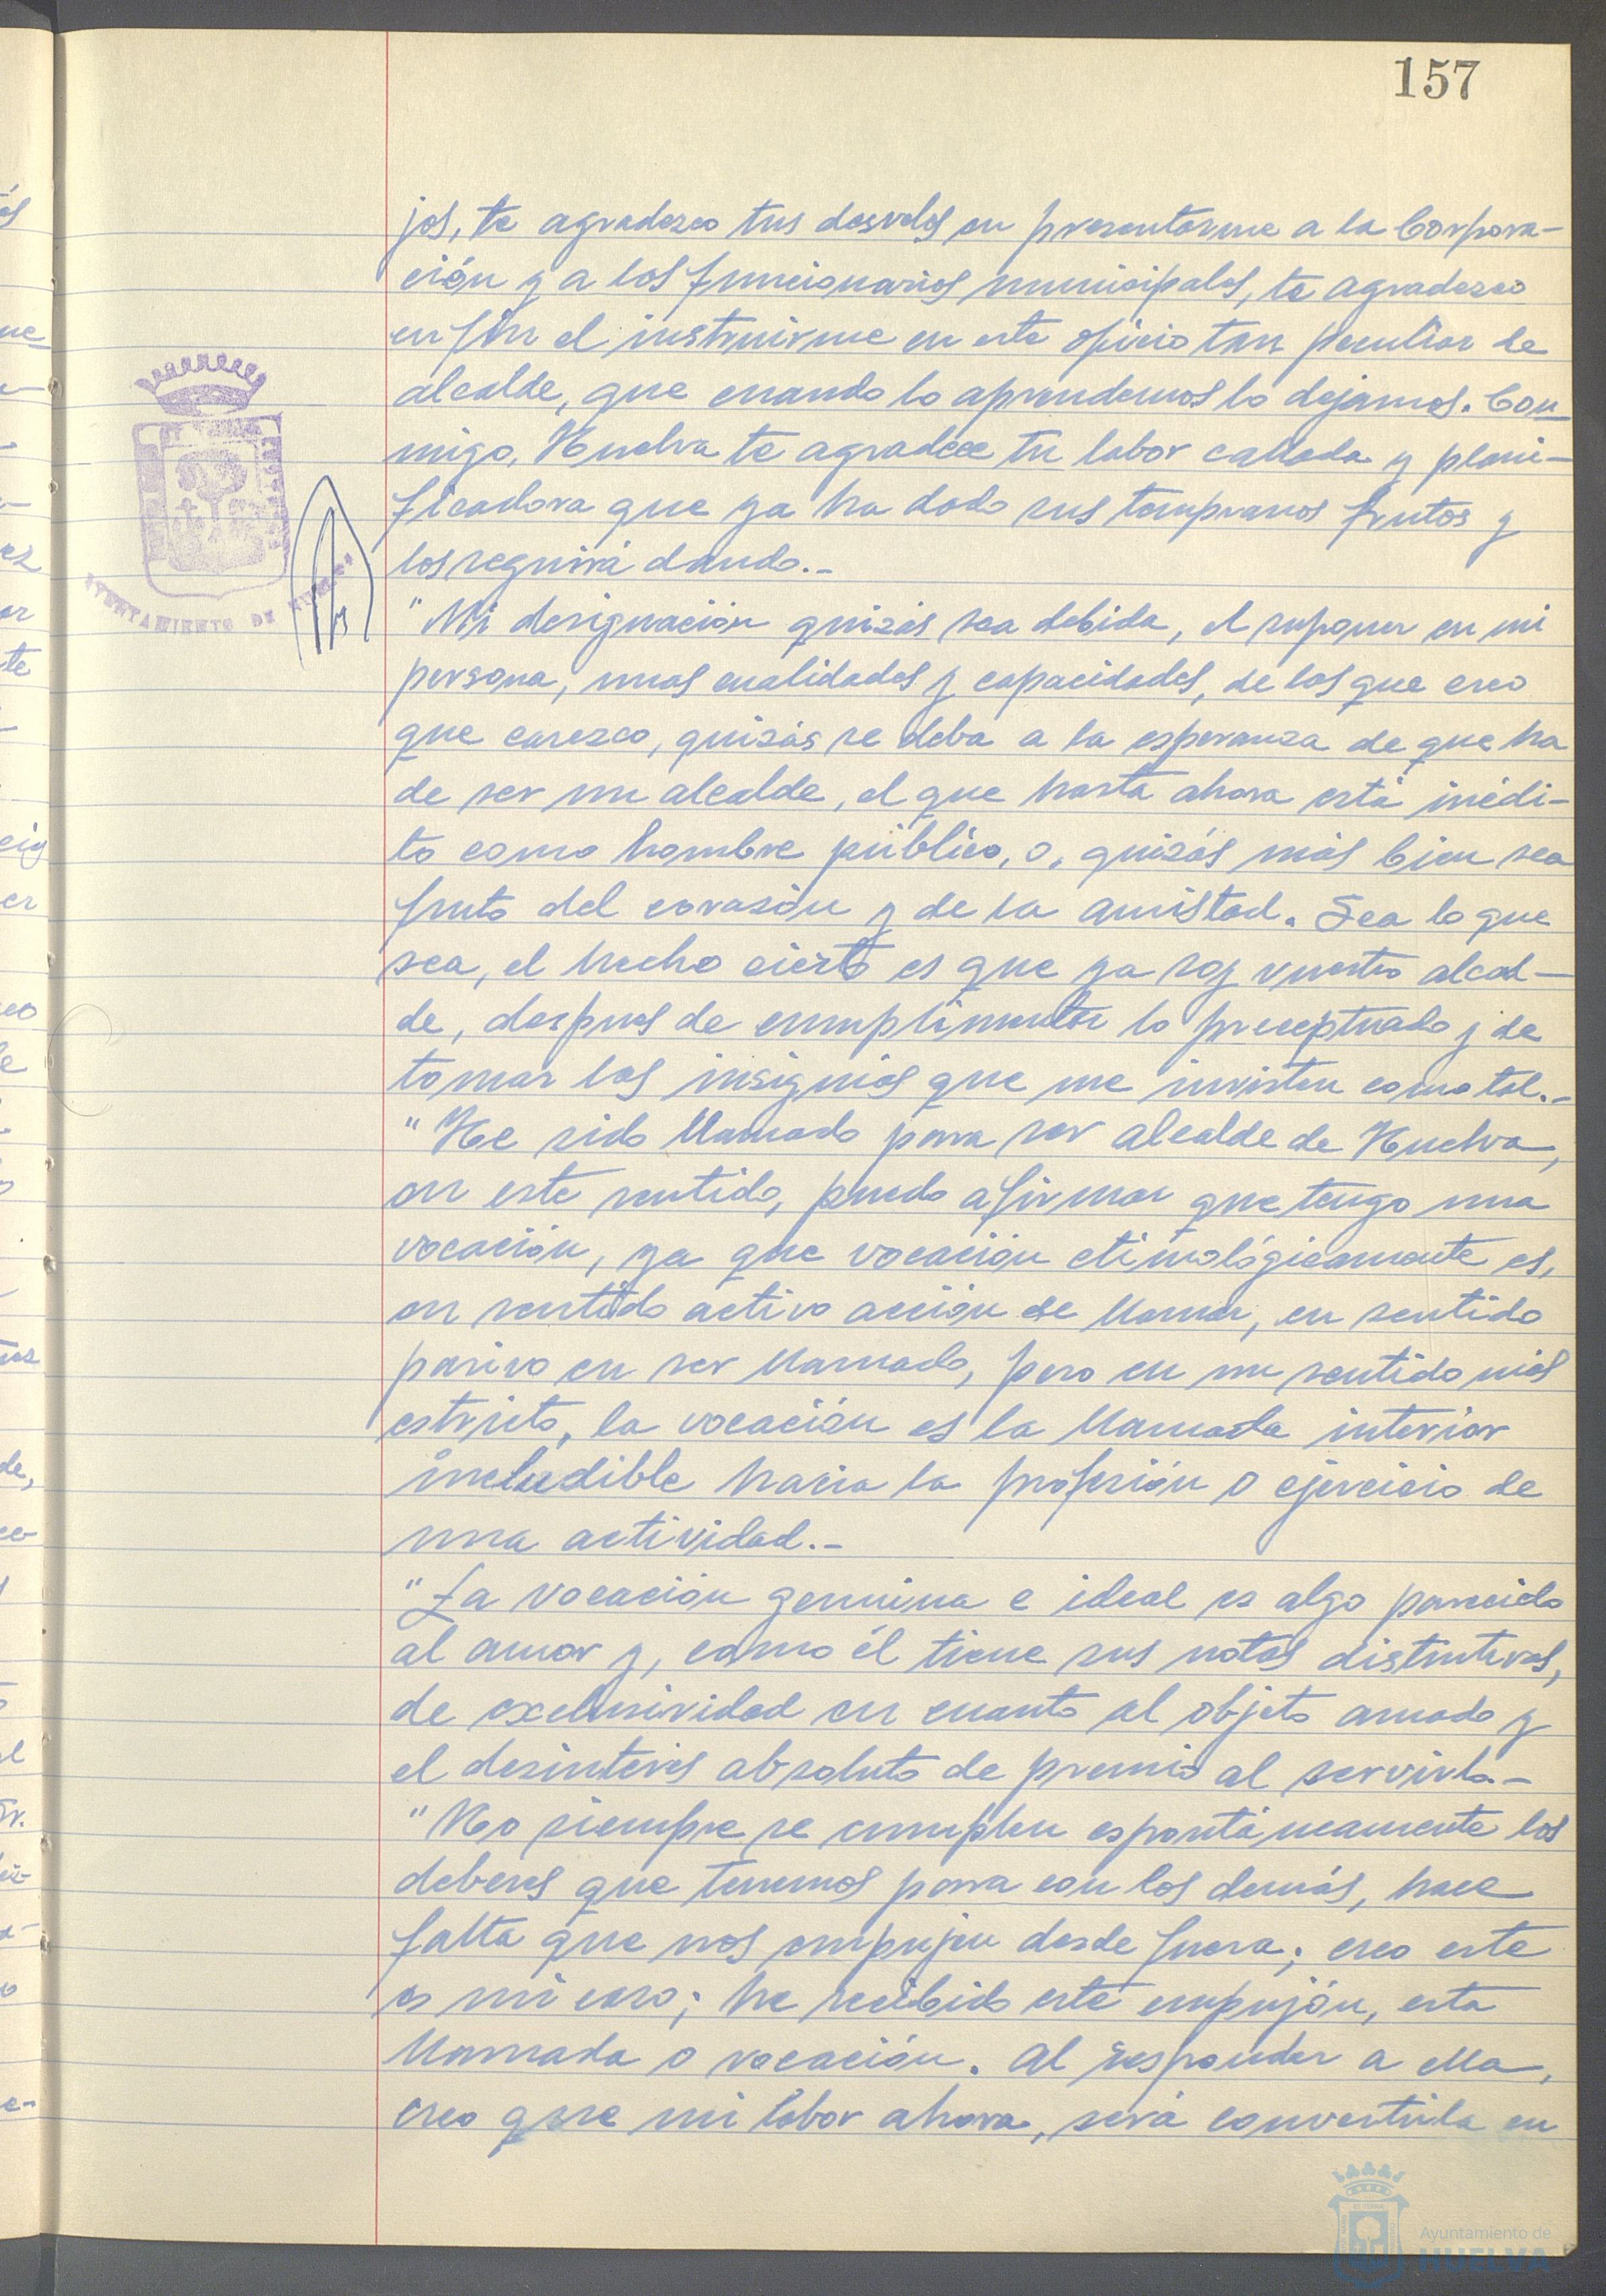 157
jos, te agradezco tus desvelos en presentarme a la Corpora-
ción y a los funcionarios municipales, te agradezco
en fin el instruirme en este oficio tan peculiar de
alcalde, que cuando lo aprendemos lo dejamos. Con-
migo, Huelva te agradece tu labor callada y plani-
ficadora que ya ha dado sus tempranos frutos y
los seguirá dando.-
"Mi designación quizás sea debida, el suponer en mi
persona, unas cualidades y capacidades, de las que creo
que carezco, quizás se deba a la esperanza de que ha
de ser un alcalde, el que hasta ahora está inédi-
to como hombre público, o, quizás más bien sea
fruto del corazón y de la amistad. Sea lo que
sea, el hecho cierto es que ya soy vuestro alcal-
de, despues de cumplimentar lo preceptuado y de
tomar las insignias que me invisten como tal.-
"He sido llamado para ser alcalde de Huelva,
en este sentido, puedo afirmar que tengo una
vocación, ya que vocación etimológicamente es,
en sentido activo acción de llamar, en sentido
pasivo en ser llamado, pero en un sentido más
estricto, la vocación es la llamada interior
ineludible hacia la profesión o ejercicio de
una actividad.-
"La vocación genuina e ideal es algo parecido
al amor y, como él tiene sus notas distintivas,
de exclusividad en cuanto al objeto amado y
el desinterés absoluto de premio al servirla.-
"No siempre se cumplen espontáneamente los
deberes que tenemos para con los demás, hace
falta que nos empujen desde fuera; creo este
es mi caso; he recibido este empujón, esta
llamada o vocación. Al responder a ella,
creo que mi labor ahora, será convertirla en
AYUNTAMIENTO DE HUELVA
Ayuntamiento de
HUELVA